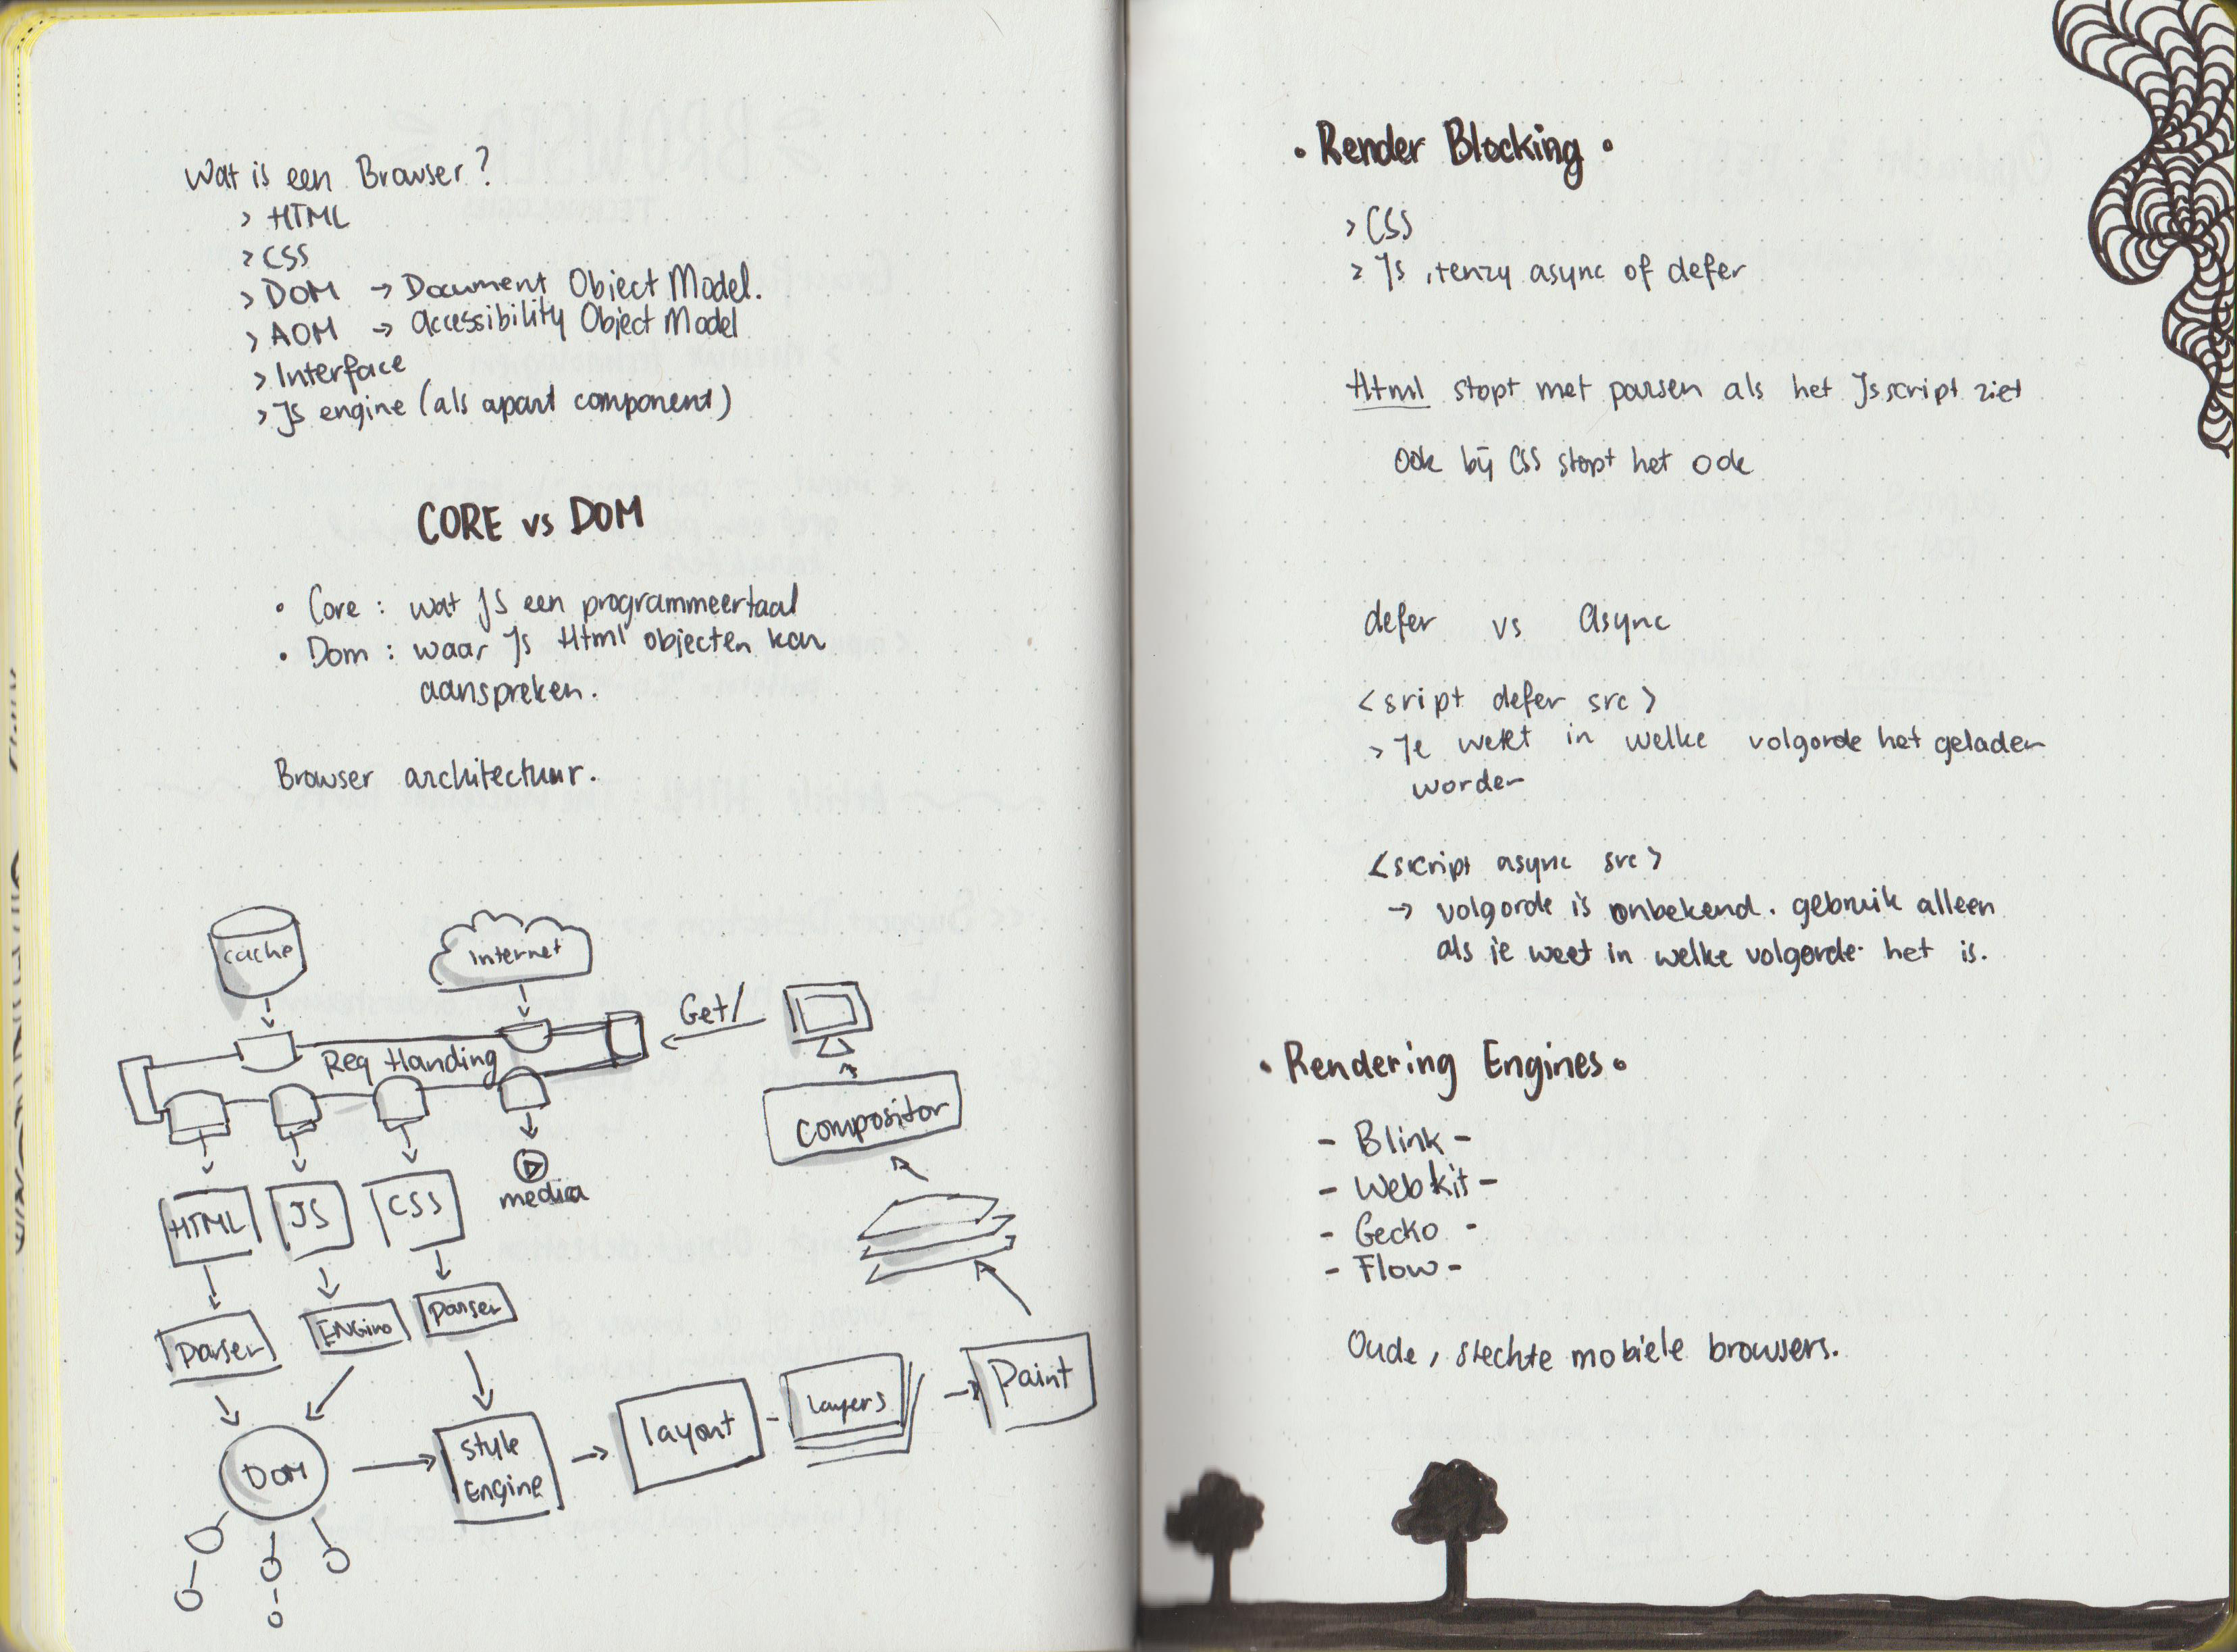 Wat is een Browser?
> HTML
> CSS
> DOM → Document Object Model.
> AOM → Accessibility Object Model
> Interface
> Js engine (als apart component)
CORE vs DOM
• Core : wat JS een programmeertaal
• Dom : waar Js Html objecten kan
aanspreken.
Browser architectuur.
cache
Internet
Get/
Req Handing
compositor
HTML
JS
CSS
media
parser
ENGine
parser
DOM
style
ENgine
layout
layers
Paint
• Render Blocking •
> CSS
> Js , tenzy async of defer
Html stopt met parsen als het Js script ziet
ook bij CSS stopt het ook
defer vs async
<sript defer src>
> Je weet in welke volgorde het geladen
worden
<script async src>
→ volgorde is onbekend. gebruik alleen
als je weet in welke volgorde het is.
• Rendering Engines •
- Blink -
- Webkit -
- Gecko -
- Flow -
Oude, slechte mobiele browsers.